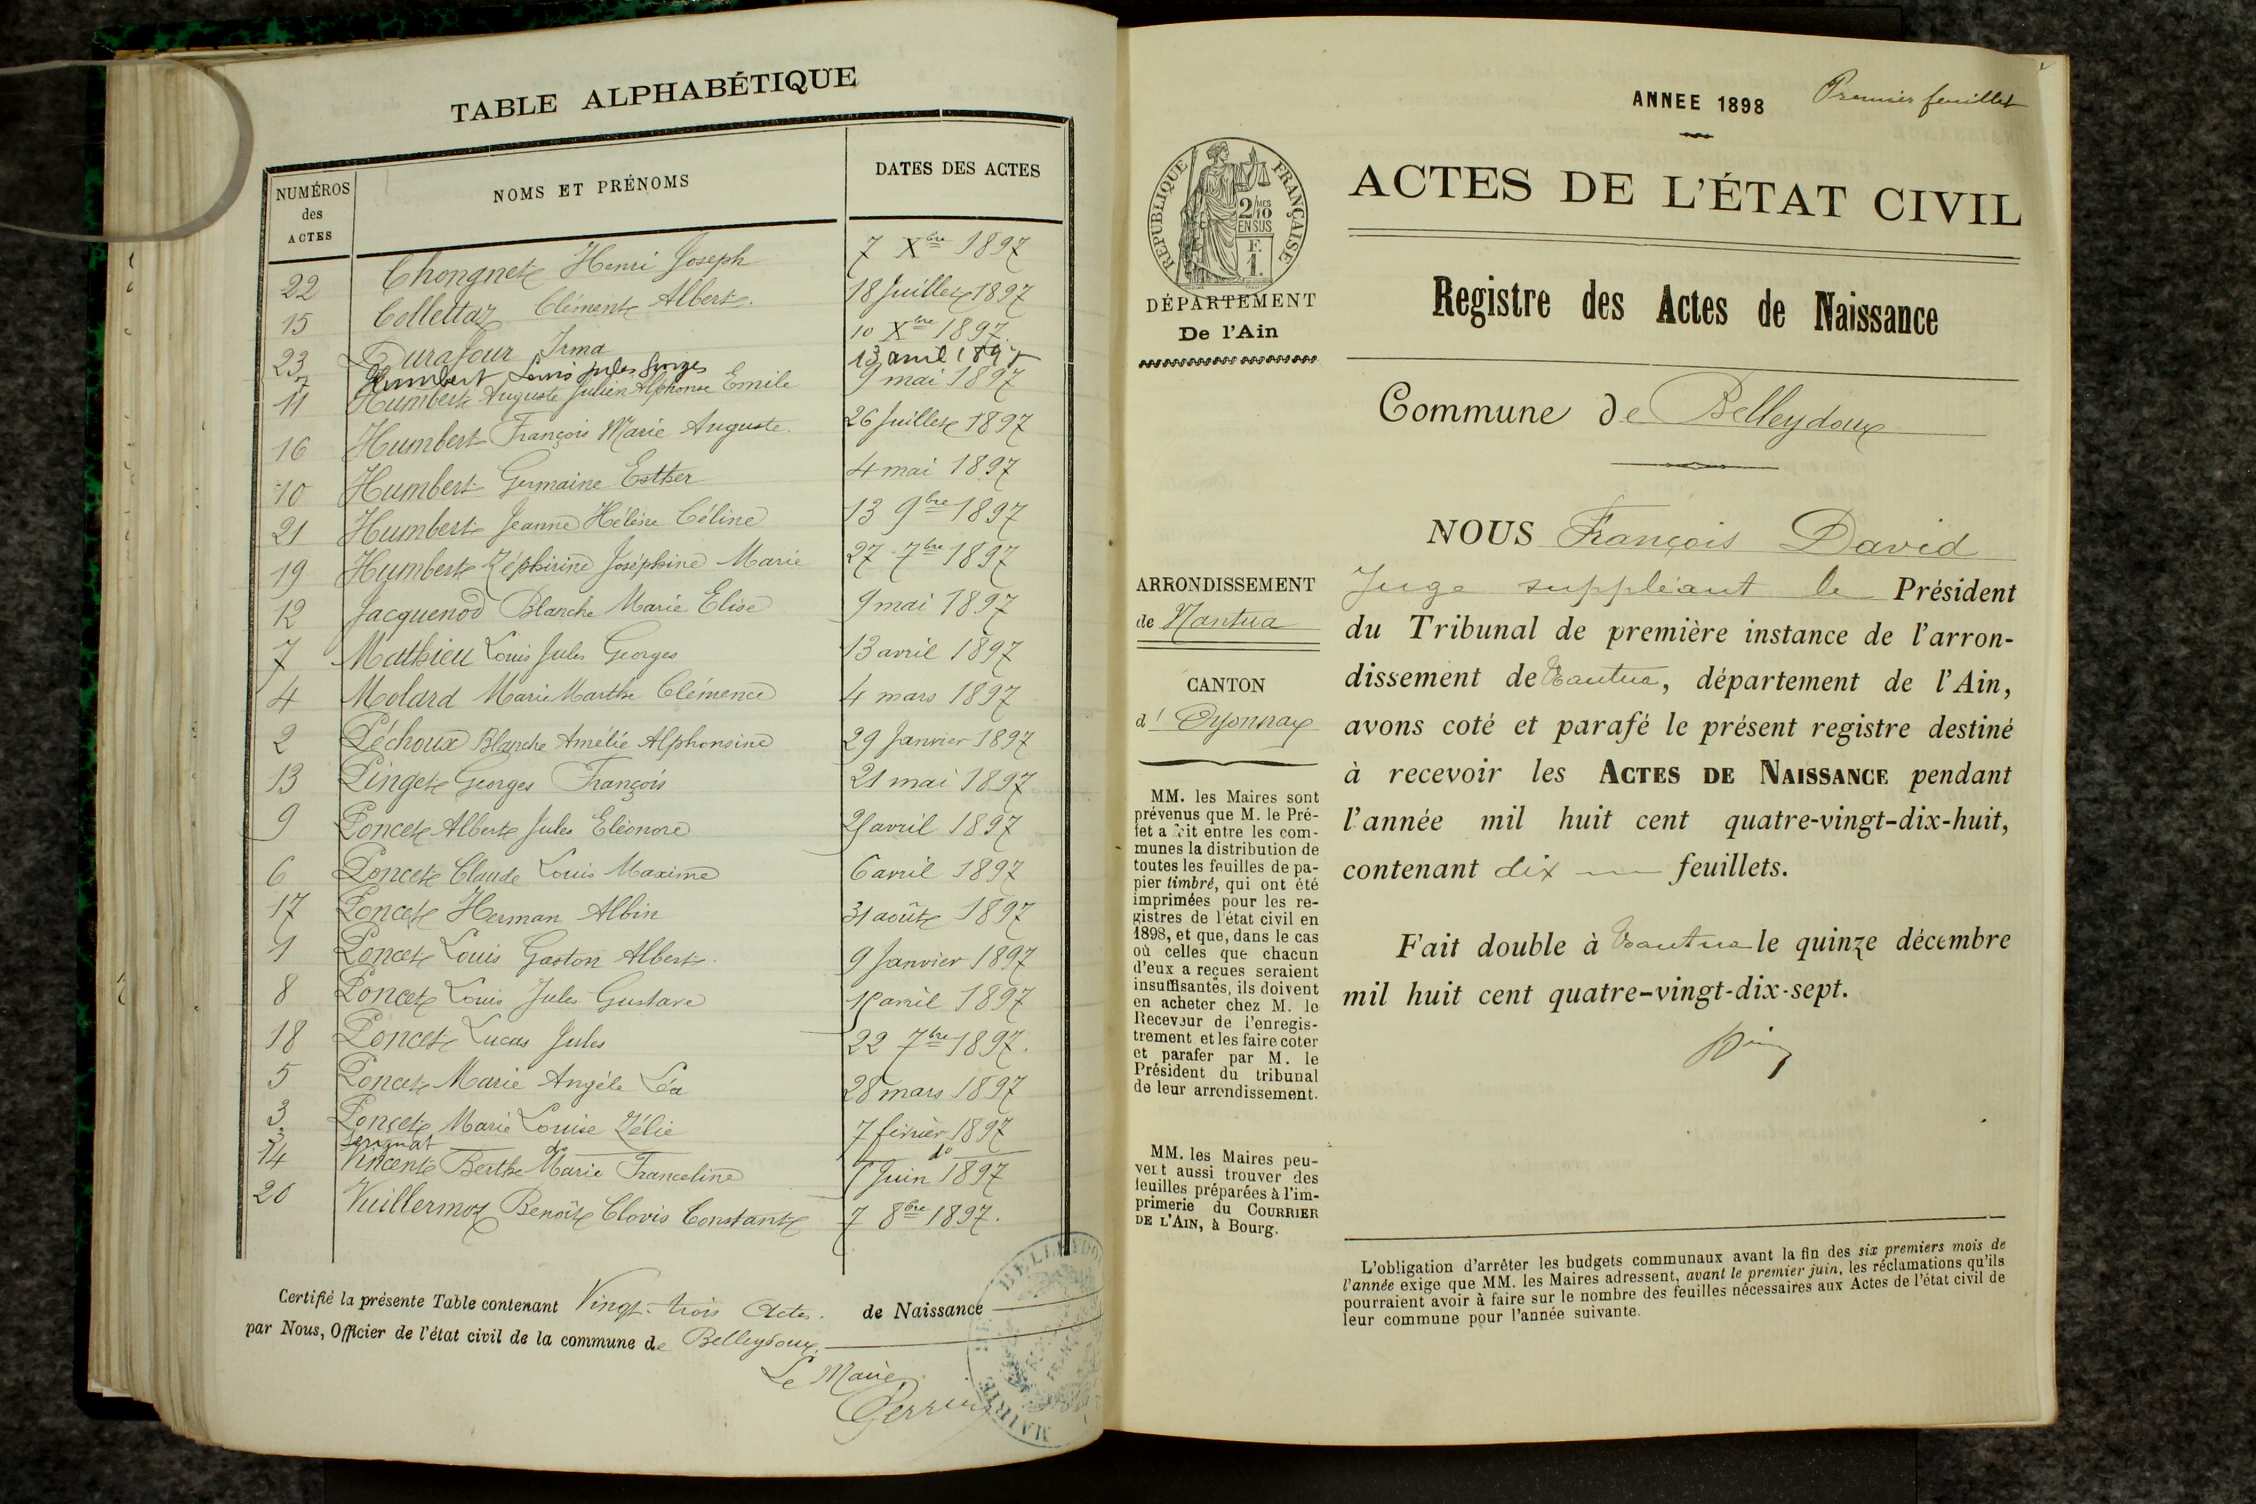 TABLE ALPHABÉTIQUE
NUMÉROS des ACTES NOMS ET PRÉNOMS DATES DES ACTES
22 Chongnet Henri Joseph 7 Xbre 1897
15 Collettaz Clément Albert. 18 Juillet 1897
23 Durafour Irma 10 Xbre 1897.
7 Humbert Louis Jules Georges 13 avril 1897
11 Humbert Auguste Julien Alphonse Emile 9 mai 1897
16 Humbert François Marie Auguste. 26 Juillet 1897
10 Humbert Germaine Esther 4 mai 1897
21 Humbert Jeanne Hélène Céline 13 9bre 1897
19 Humbert Zéphirine Joséphine Marie 27 7bre 1897
12 Jacquenod Blanche Marie Elise 9 mai 1897
7 Mathieu Louis Jules Georges 13 avril 1897
4 Molard Marie Marthe Clémence 4 mars 1897
2 Péchoux Blanche Amélie Alphonsine 29 Janvier 1897
13 Pinget Georges François 21 mai 1897
9 Poncet Albert Jules Eléonore avril 1897
6 Poncet Claude Louis Maxime 6 avril 1897
17 Poncet Herman Albin 31 août 1897
1 Poncet Louis Gaston Albert. 9 Janvier 1897
8 Poncet Louis Jules Gustave avril 1897
18 Poncet Lucas Jules 22 7bre 1897.
5 Poncet Marie Angèle Léa 28 mars 1897
3 Poncet Marie Louise Zélie 7 février 1897
3 do do
14 Vincent Berthe Marie Franceline Juin 1897
20 Vuillermoz Benoît Clovis Constant 7 8bre 1897.
Certifié la présente Table contenant Vingt-trois Actes. de Naissance
par Nous, Officier de l'état civil de la commune de Belleydoux.
Le Maire
MAIRIE BELLEYDOUX
ANNEE 1898 Premier feuillet
RÉPUBLIQUE FRANÇAISE
2/10 MES
EN SUS
F.
1.
ACTES DE L'ÉTAT CIVIL
DÉPARTEMENT
De l'Ain
Registre des Actes de Naissance
Commune de Belleydoux
ARRONDISSEMENT
de Nantua
CANTON
d' Oyonnax
MM. les Maires sont
prévenus que M. le Pré-
fet a fait entre les com-
munes la distribution de
toutes les feuilles de pa-
pier timbré, qui ont été
imprimées pour les re-
gistres de l'état civil en
1898, et que, dans le cas
où celles que chacun
d'eux a reçues seraient
insuffisantes, ils doivent
en acheter chez M. le
Receveur de l'enregis-
trement et les faire coter
et parafer par M. le
Président du tribunal
de leur arrondissement.
MM. les Maires peu-
vent aussi trouver des
feuilles préparées à l'im-
primerie du COURRIER
DE L'AIN, à Bourg.
NOUS François David
Juge suppléant le Président
du Tribunal de première instance de l'arron-
dissement de Nantua, département de l'Ain,
avons coté et parafé le présent registre destiné
à recevoir les ACTES DE NAISSANCE pendant
l'année mil huit cent quatre-vingt-dix-huit,
contenant dix feuillets.
Fait double à Nantua le quinze décembre
mil huit cent quatre-vingt-dix-sept.
L'obligation d'arrêter les budgets communaux avant la fin des six premiers mois de
l'année exige que MM. les Maires adressent, avant le premier juin, les réclamations qu'ils
pourraient avoir à faire sur le nombre des feuilles nécessaires aux Actes de l'état civil de
leur commune pour l'année suivante.